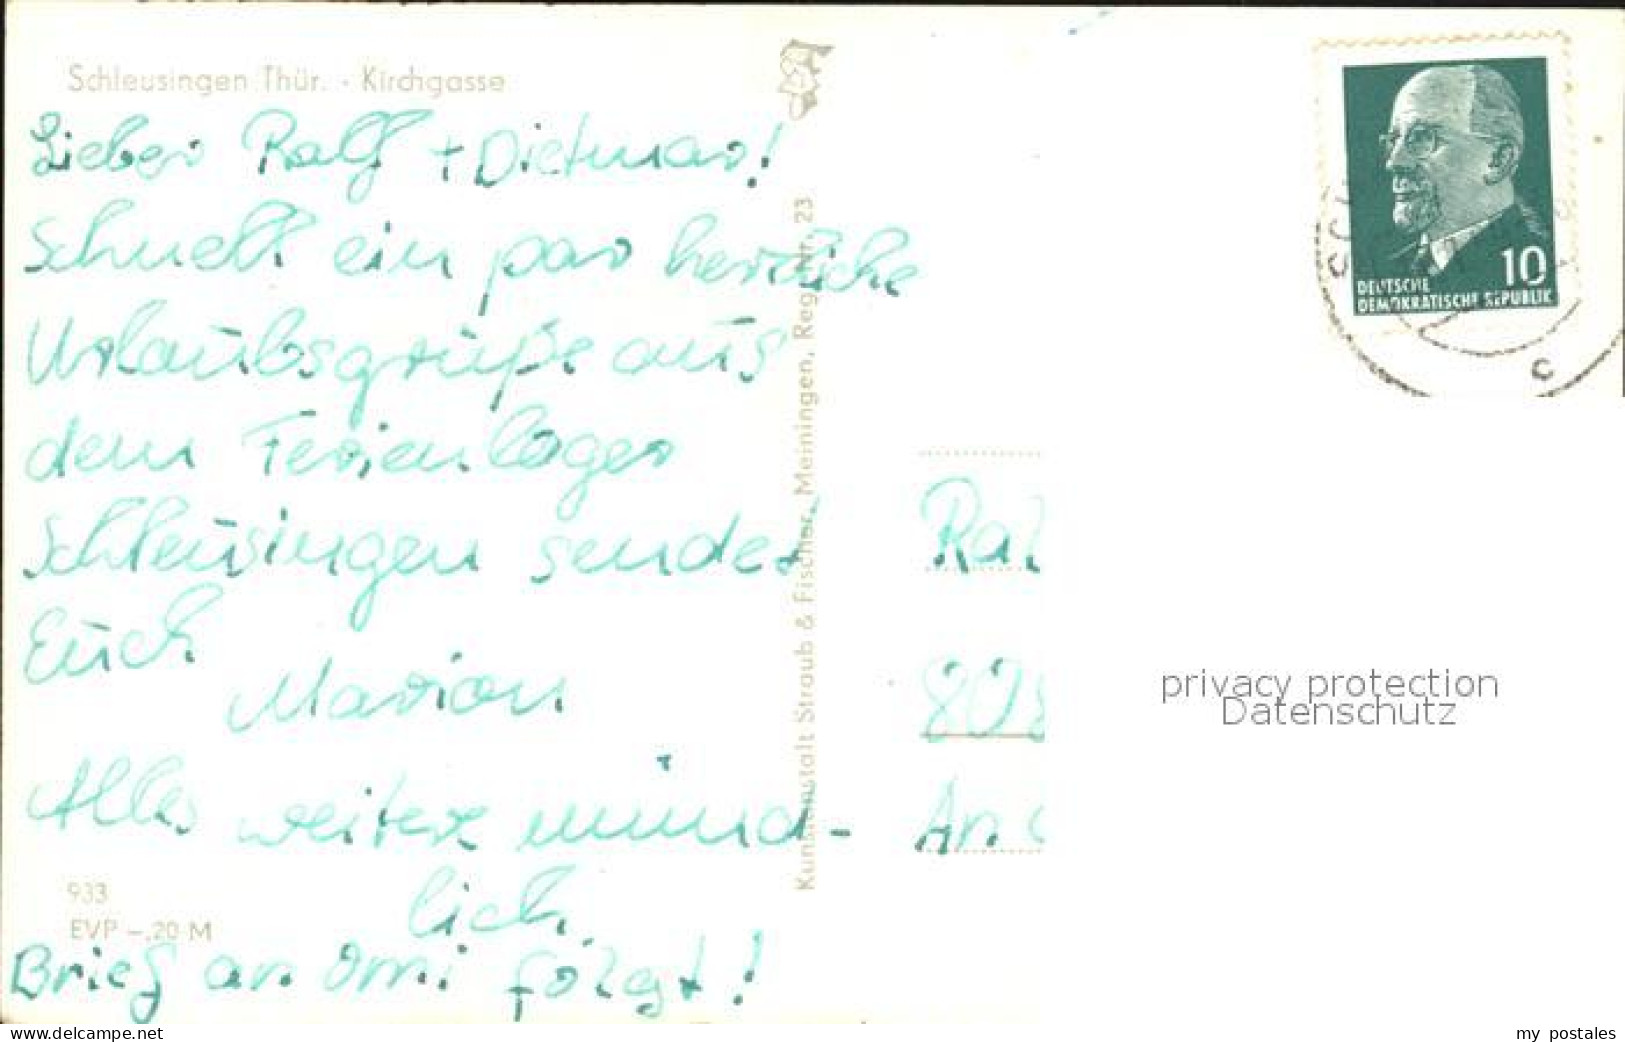 Schleusingen Thür. · Kirchgasse
Lieber Ralf + Dietmar!
Schnell ein par herzliche
Urlaubsgrüße aus
dem Ferienlager
Schleusingen sendet
Euch
Marion
Alles weitere münd-
lich.
Brief an Omi folgt!
933
EVP –.20 M
Kunstanstalt Straub & Fischer, Meiningen, Reg.-Nr. 23
10
DEUTSCHE
DEMOKRATISCHE REPUBLIK
c
Ral
808
An
privacy protection
Datenschutz
www.delcampe.net
my_postales